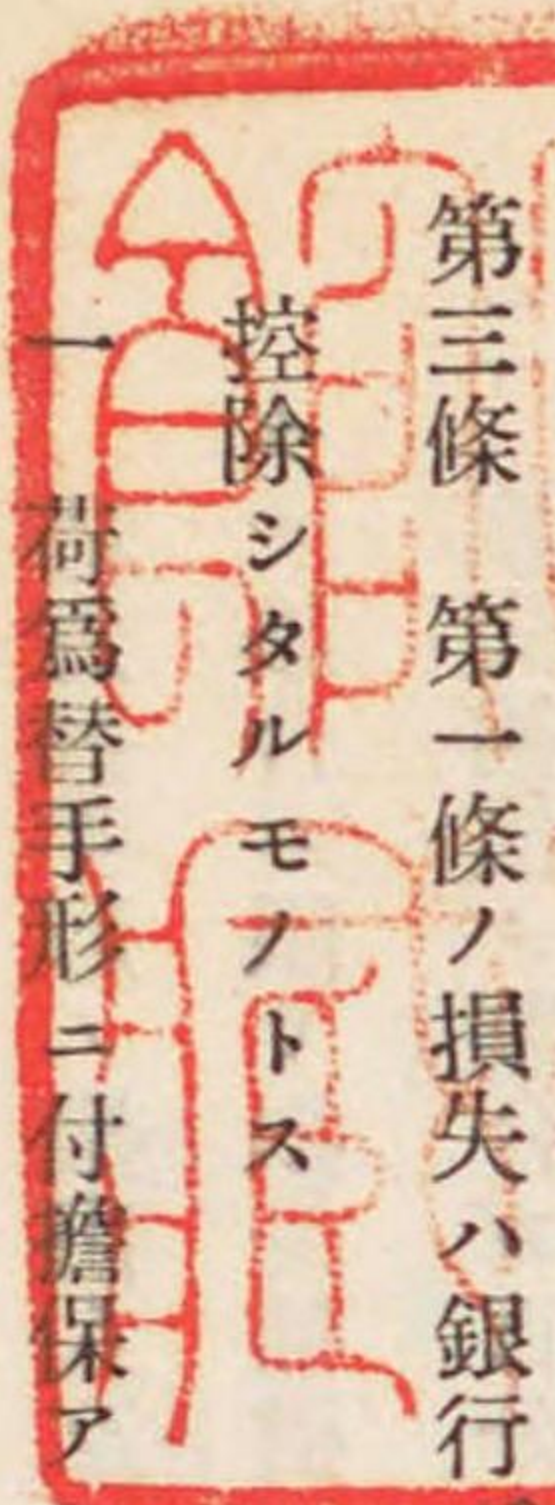 第三條　第一條ノ損失ハ銀行
控除シタルモノトス
一　荷爲替手形ニ付擔保ア